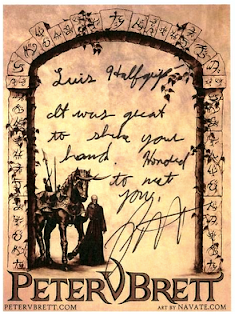 Luis Halfgift
It was great
to shake your
hand. Honored
to meet
you,
PETER V BRETT
PETERVBRETT.COM
ART BY NAVATE.COM